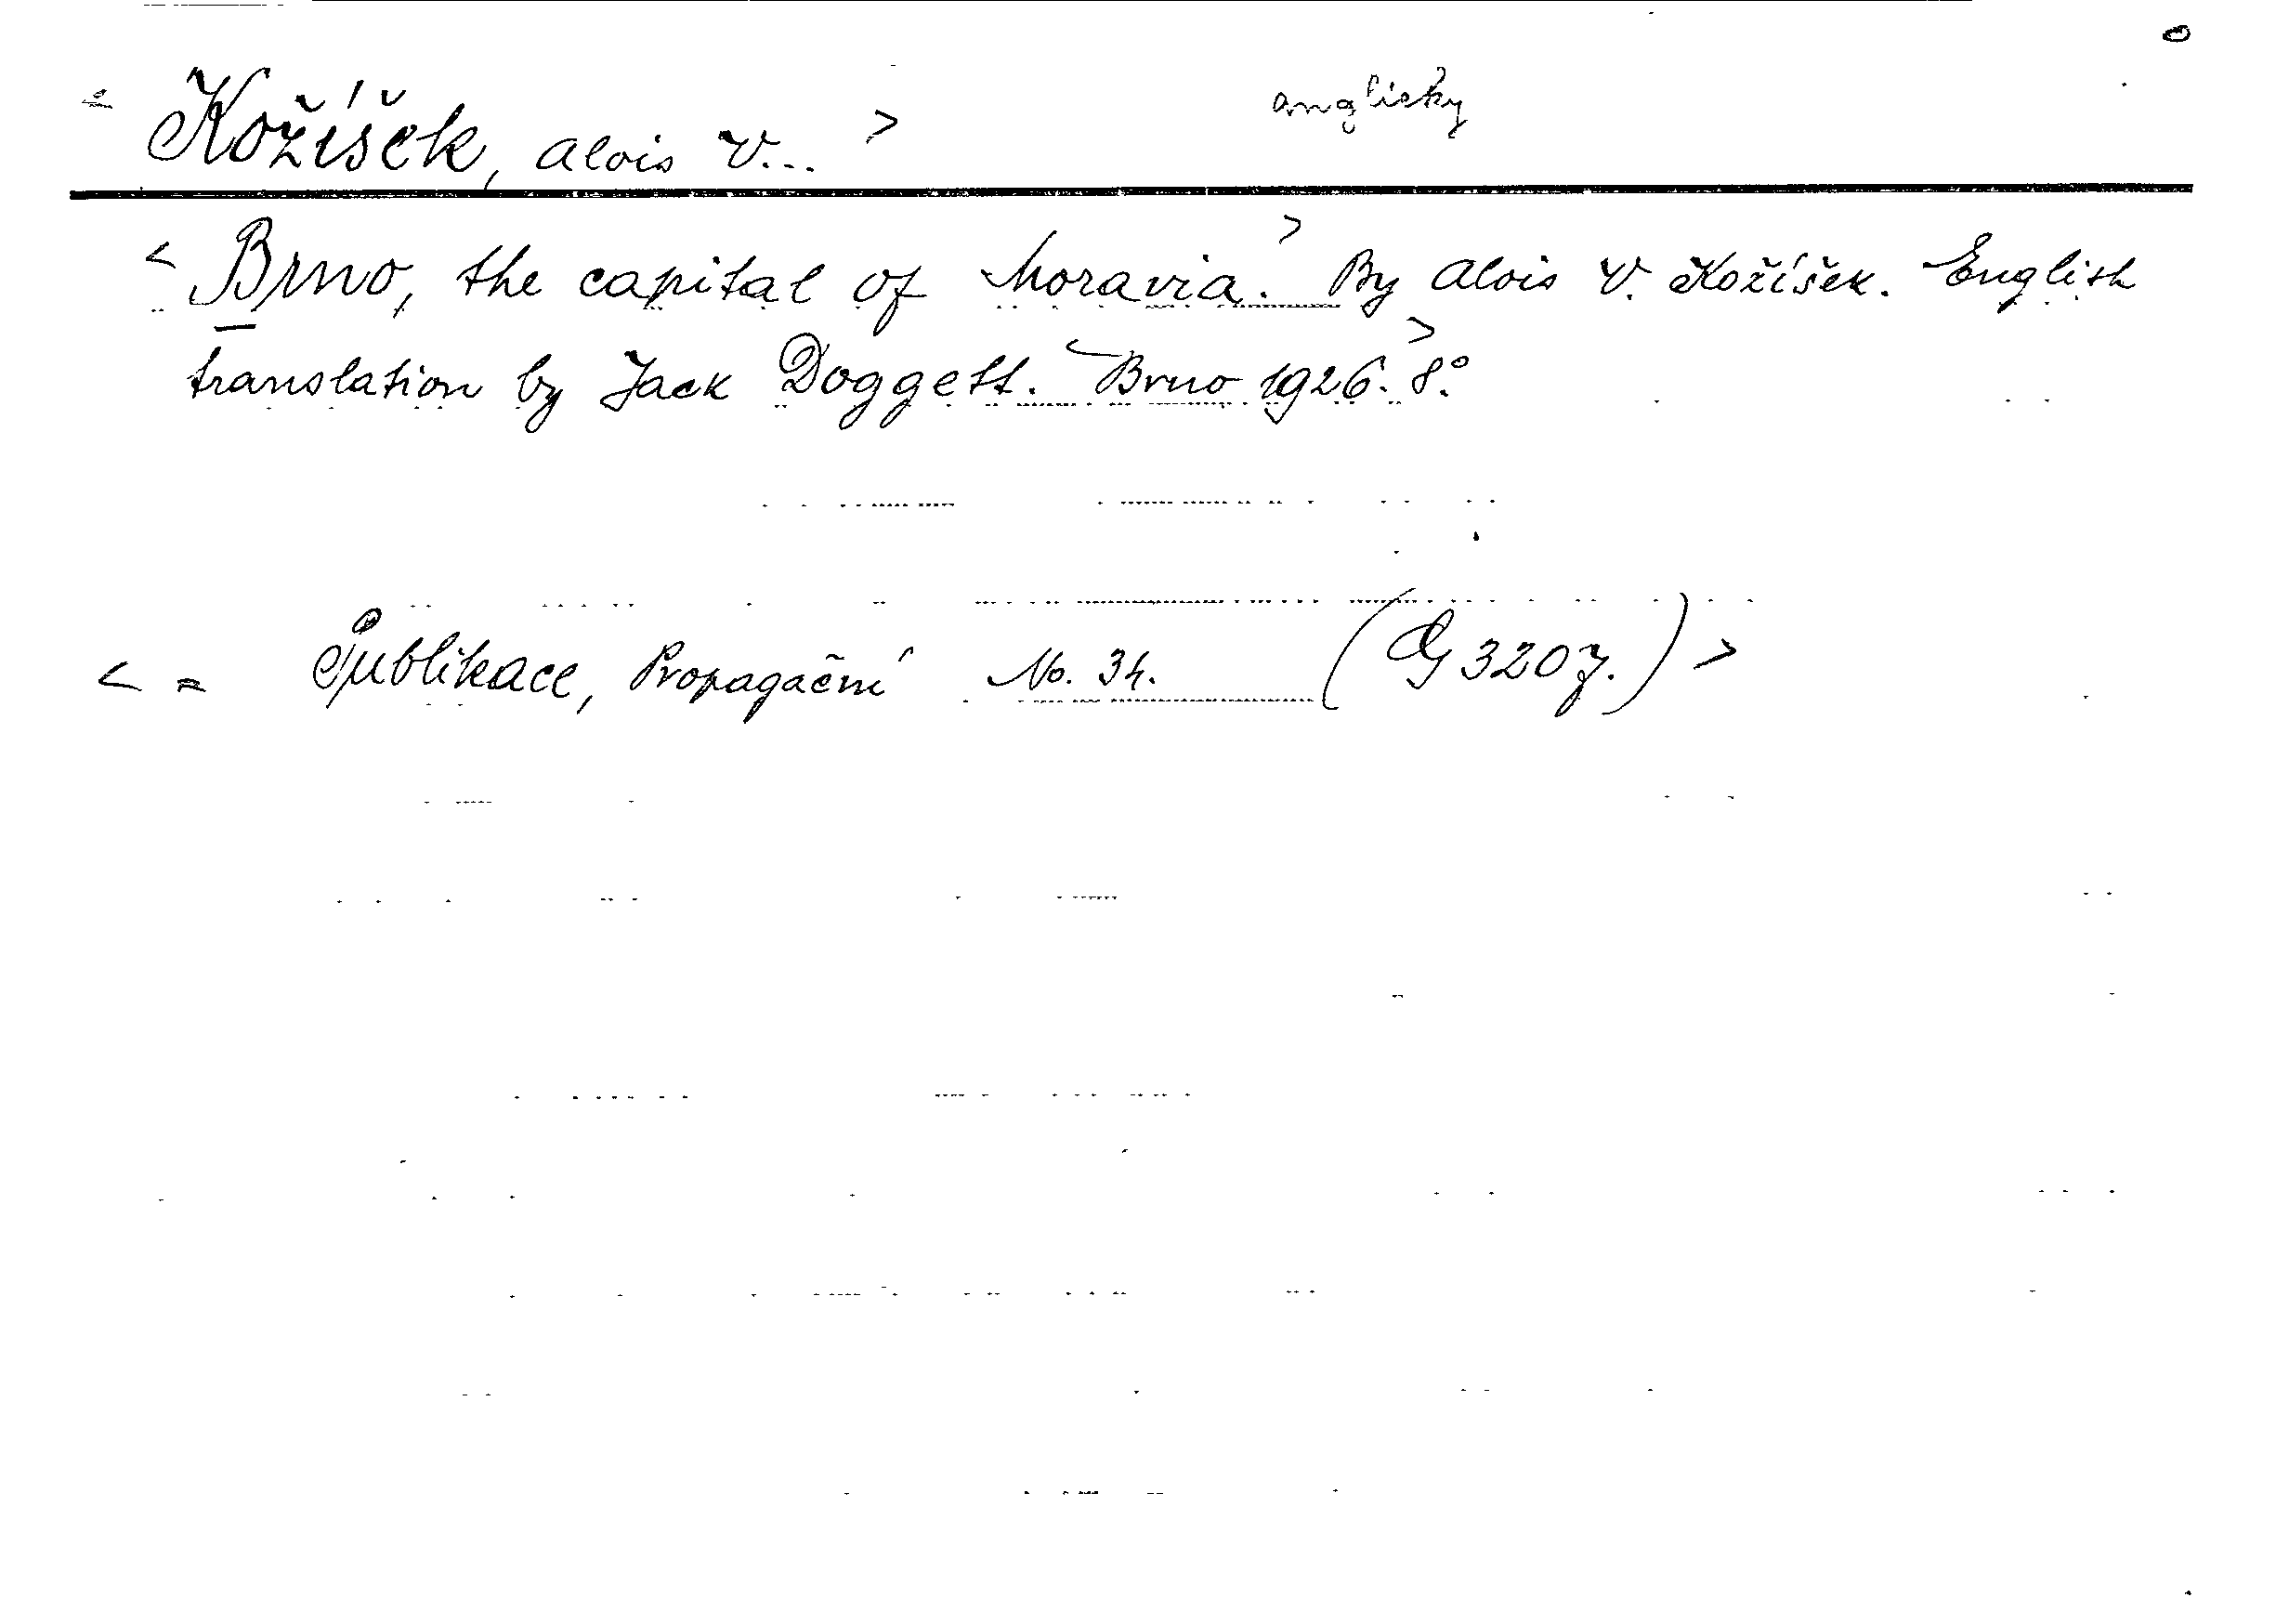 < Kožíšek, Alois V... > anglicky
< Brno, the capital of Moravia. > By Alois V. Kožíšek. English
translation by Jack Doggett. < Brno 1926. > 8°.
< = Publikace, Propagační No. 34. (G 3207.) >